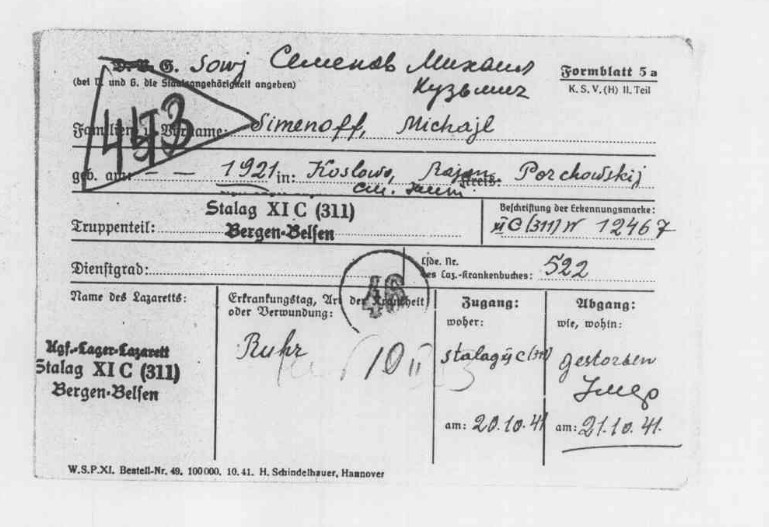 D. R. G. Sowj Семенов Михаил
Кузьмич
(bei D. und G. die Staatsangehörigkeit angeben)
Formblatt 5a
K. S. V. (H) II. Teil
443
Familien- u. Vorname: Simenoff, Michajl
geb. am: — — 1921 in: Koslowo, Rajon Porchowskij
Kreis:
Stalag XI C (311)
Bergen-Belsen
Truppenteil:
Beschriftung der Erkennungsmarke:
XI C (311) N 12467
Dienstgrad:
Lfde. Nr.
des Laz.-Krankenbuches: 522
46
Name des Lazaretts:
Kgf.-Lager-Lazarett
Stalag XI C (311)
Bergen-Belsen
Erkrankungstag, Art der Krankheit
oder Verwundung:
Ruhr
10 II
Zugang:
woher:
Stalag XI C (311)
am: 20.10.41
Abgang:
wie, wohin:
gestorben
Умер
am: 21.10.41.
W.S.P.XI. Bestell-Nr. 49. 100000. 10.41. H. Schindelhauer, Hannover